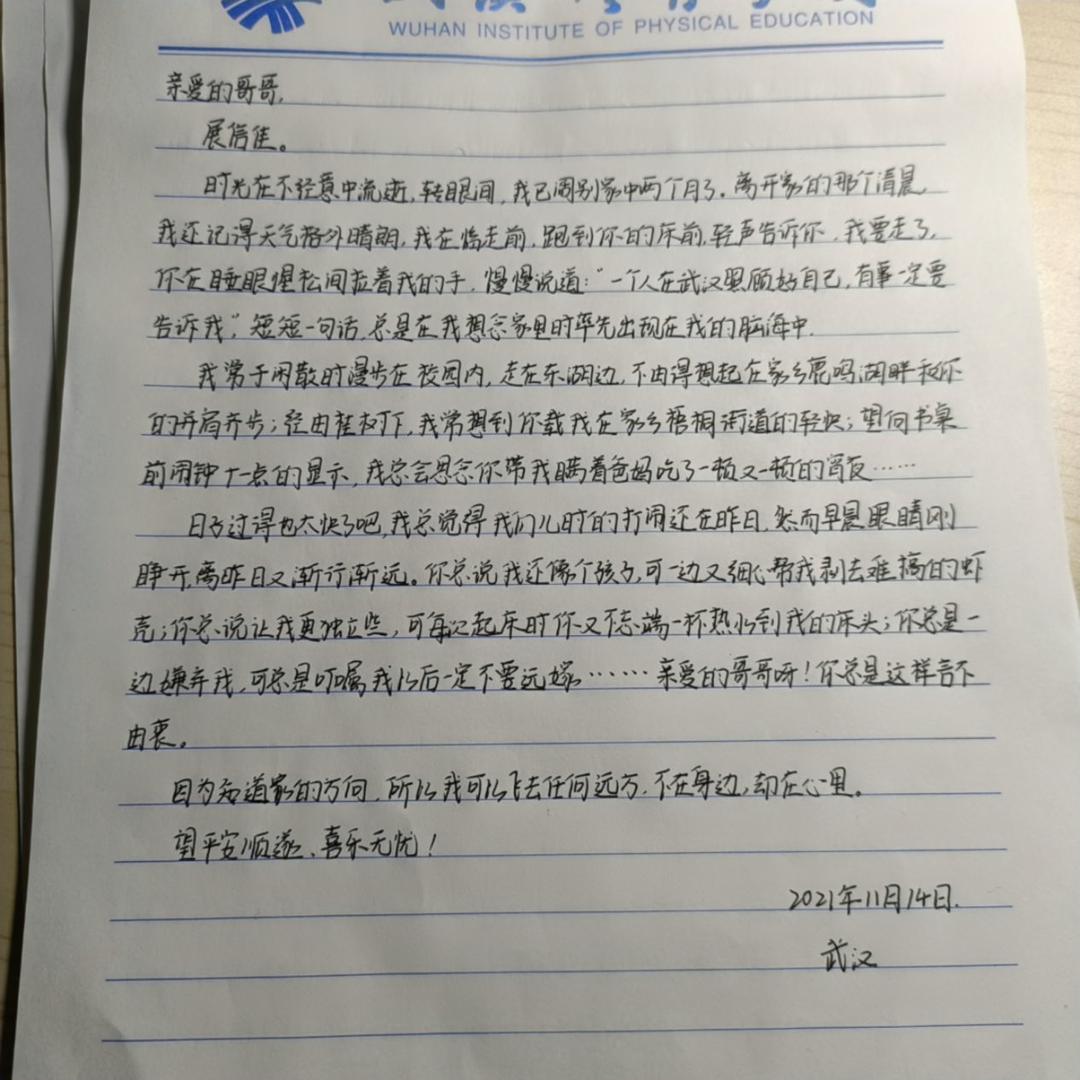 WUHAN INSTITUTE OF PHYSICAL EDUCATION
亲爱的哥哥,
展信佳。
时光在不经意中流逝,转眼间,我已阔别家中两个月了。离开家的那个清晨,
我还记得天气格外晴朗,我在临走前,跑到你的床前,轻声告诉你,我要走了,
你在睡眼惺松间拉着我的手,慢慢说道:“一个人在武汉照顾好自己,有事一定要
告诉我”,短短一句话,总是在我想念家里时率先出现在我的脑海中.
我常于闲散时漫步在校园内,走在东湖边,不由得想起在家乡鹿鸣湖畔和你
的并肩齐步;经由桂树下,我常想到你载我在家乡梧桐街道的轻快;望向书桌
前闹钟十一点的显示,我总会思念你带我瞒着爸妈吃了一顿又一顿的宵夜……
日子过得也太快了吧,我总觉得我们儿时的打闹还在昨日,然而早晨眼睛刚
睁开,离昨日又渐行渐远。你总说我还像个孩子,可一边又细心帮我剥去难搞的虾
壳;你总说让我更独立些,可每次起床时你又不忘端一杯热水到我的床头;你总是一
边嫌弃我,可总是叮嘱我以后一定不要远嫁……亲爱的哥哥呀!你总是这样言不
由衷。
因为知道家的方向,所以我可以飞去任何远方,不在身边,却在心里。
望平安顺遂、喜乐无忧!
2021年11月14日.
武汉